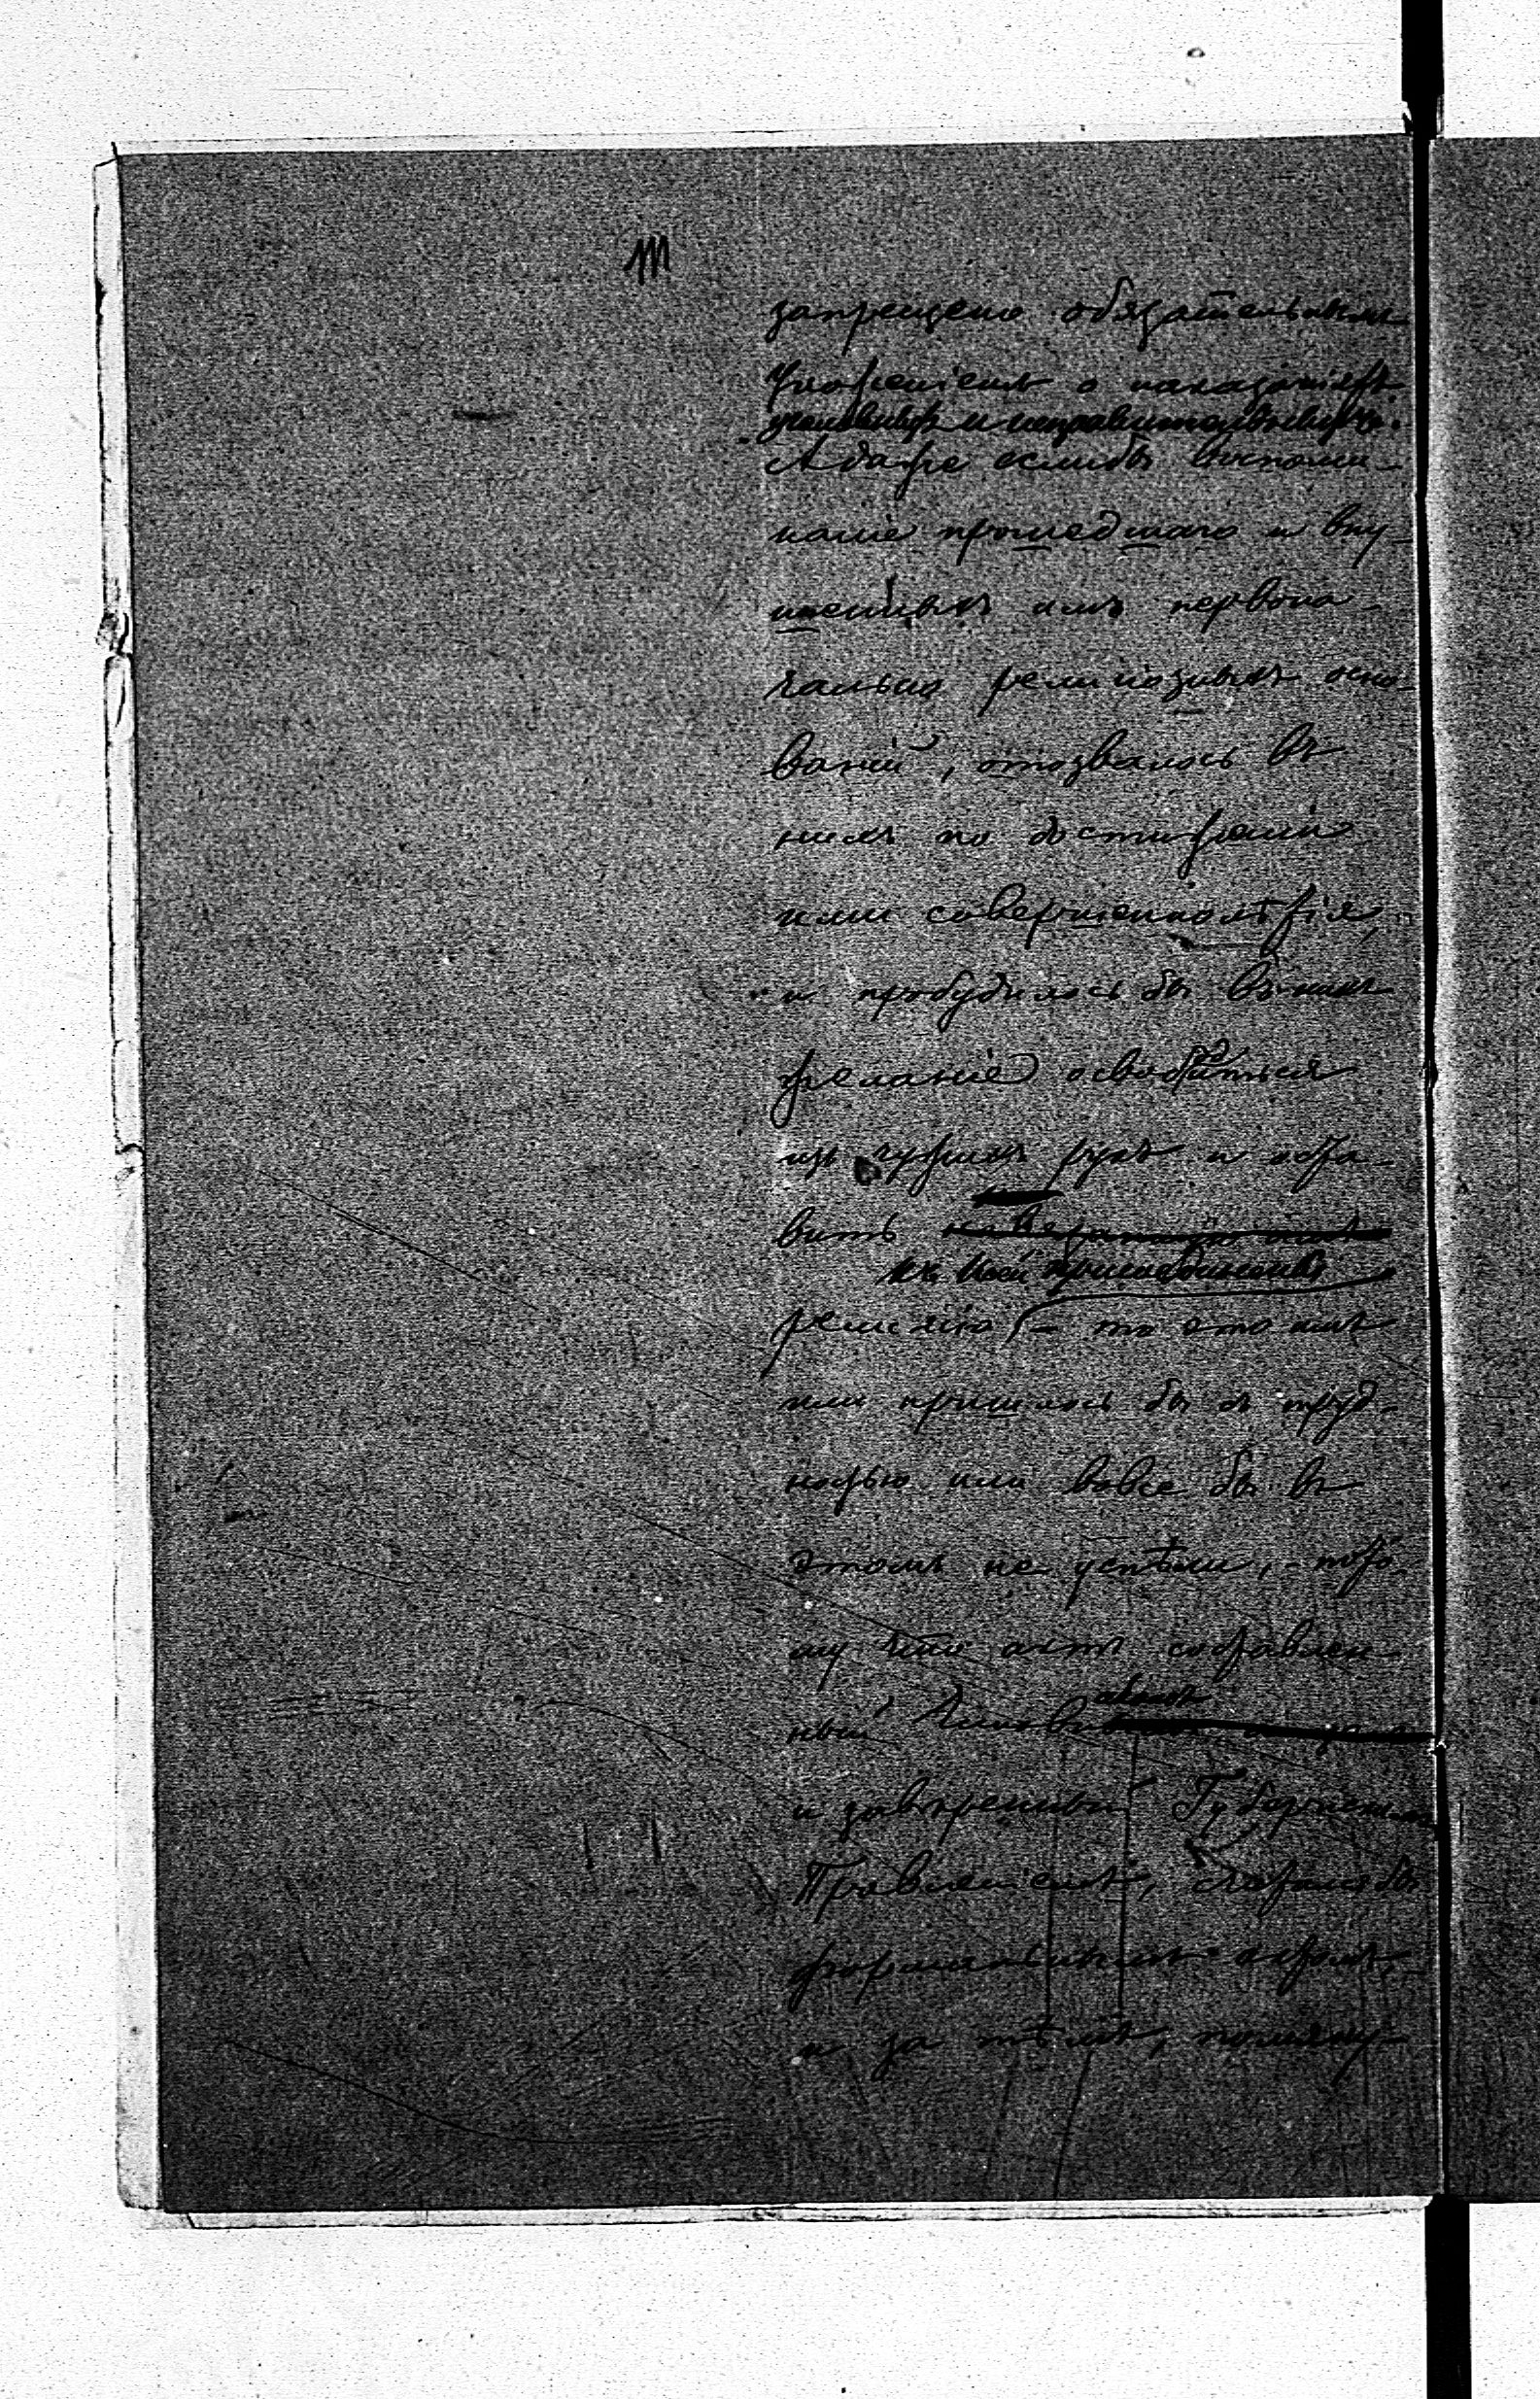 запрещено обязательнымъ
Уложеніемъ о наказаніяхъ
уголовныхъ и исправительныхъ.
А даже еслибы воспоми-
наніе прошедшаго и вну-
шенныхъ имъ первона-
чально религіозныхъ осно-
ваній, отозвалось въ
нихъ по достиженіи
ими совершеннолѣтія,
и пробудилось бы въ нихъ
желаніе освободиться
изъ чужихъ рукъ и оста-
вить
къ ней
религію, – то это имъ
или пришлось бы съ труд-
ностью или вовсе бы въ
этомъ не успѣли, – пото-
му что актъ составлен-
ный Чиновникомъ
и завѣренный Губернскимъ
Правленіемъ, служилъ бы
формальнымъ актомъ,
и за тѣмъ,